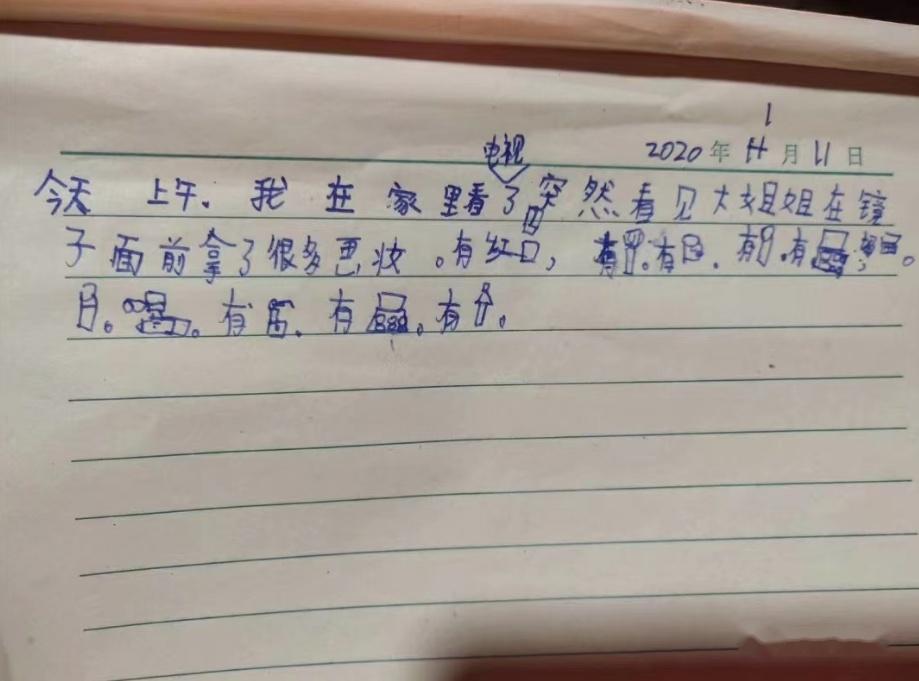 1
电视 2020年 月 11日
今天 上午. 我在家里看了突然看见大姐姐在镜
子面前拿了很多巴妆。有红口, 有 有 . 有 有
有 . 有 有